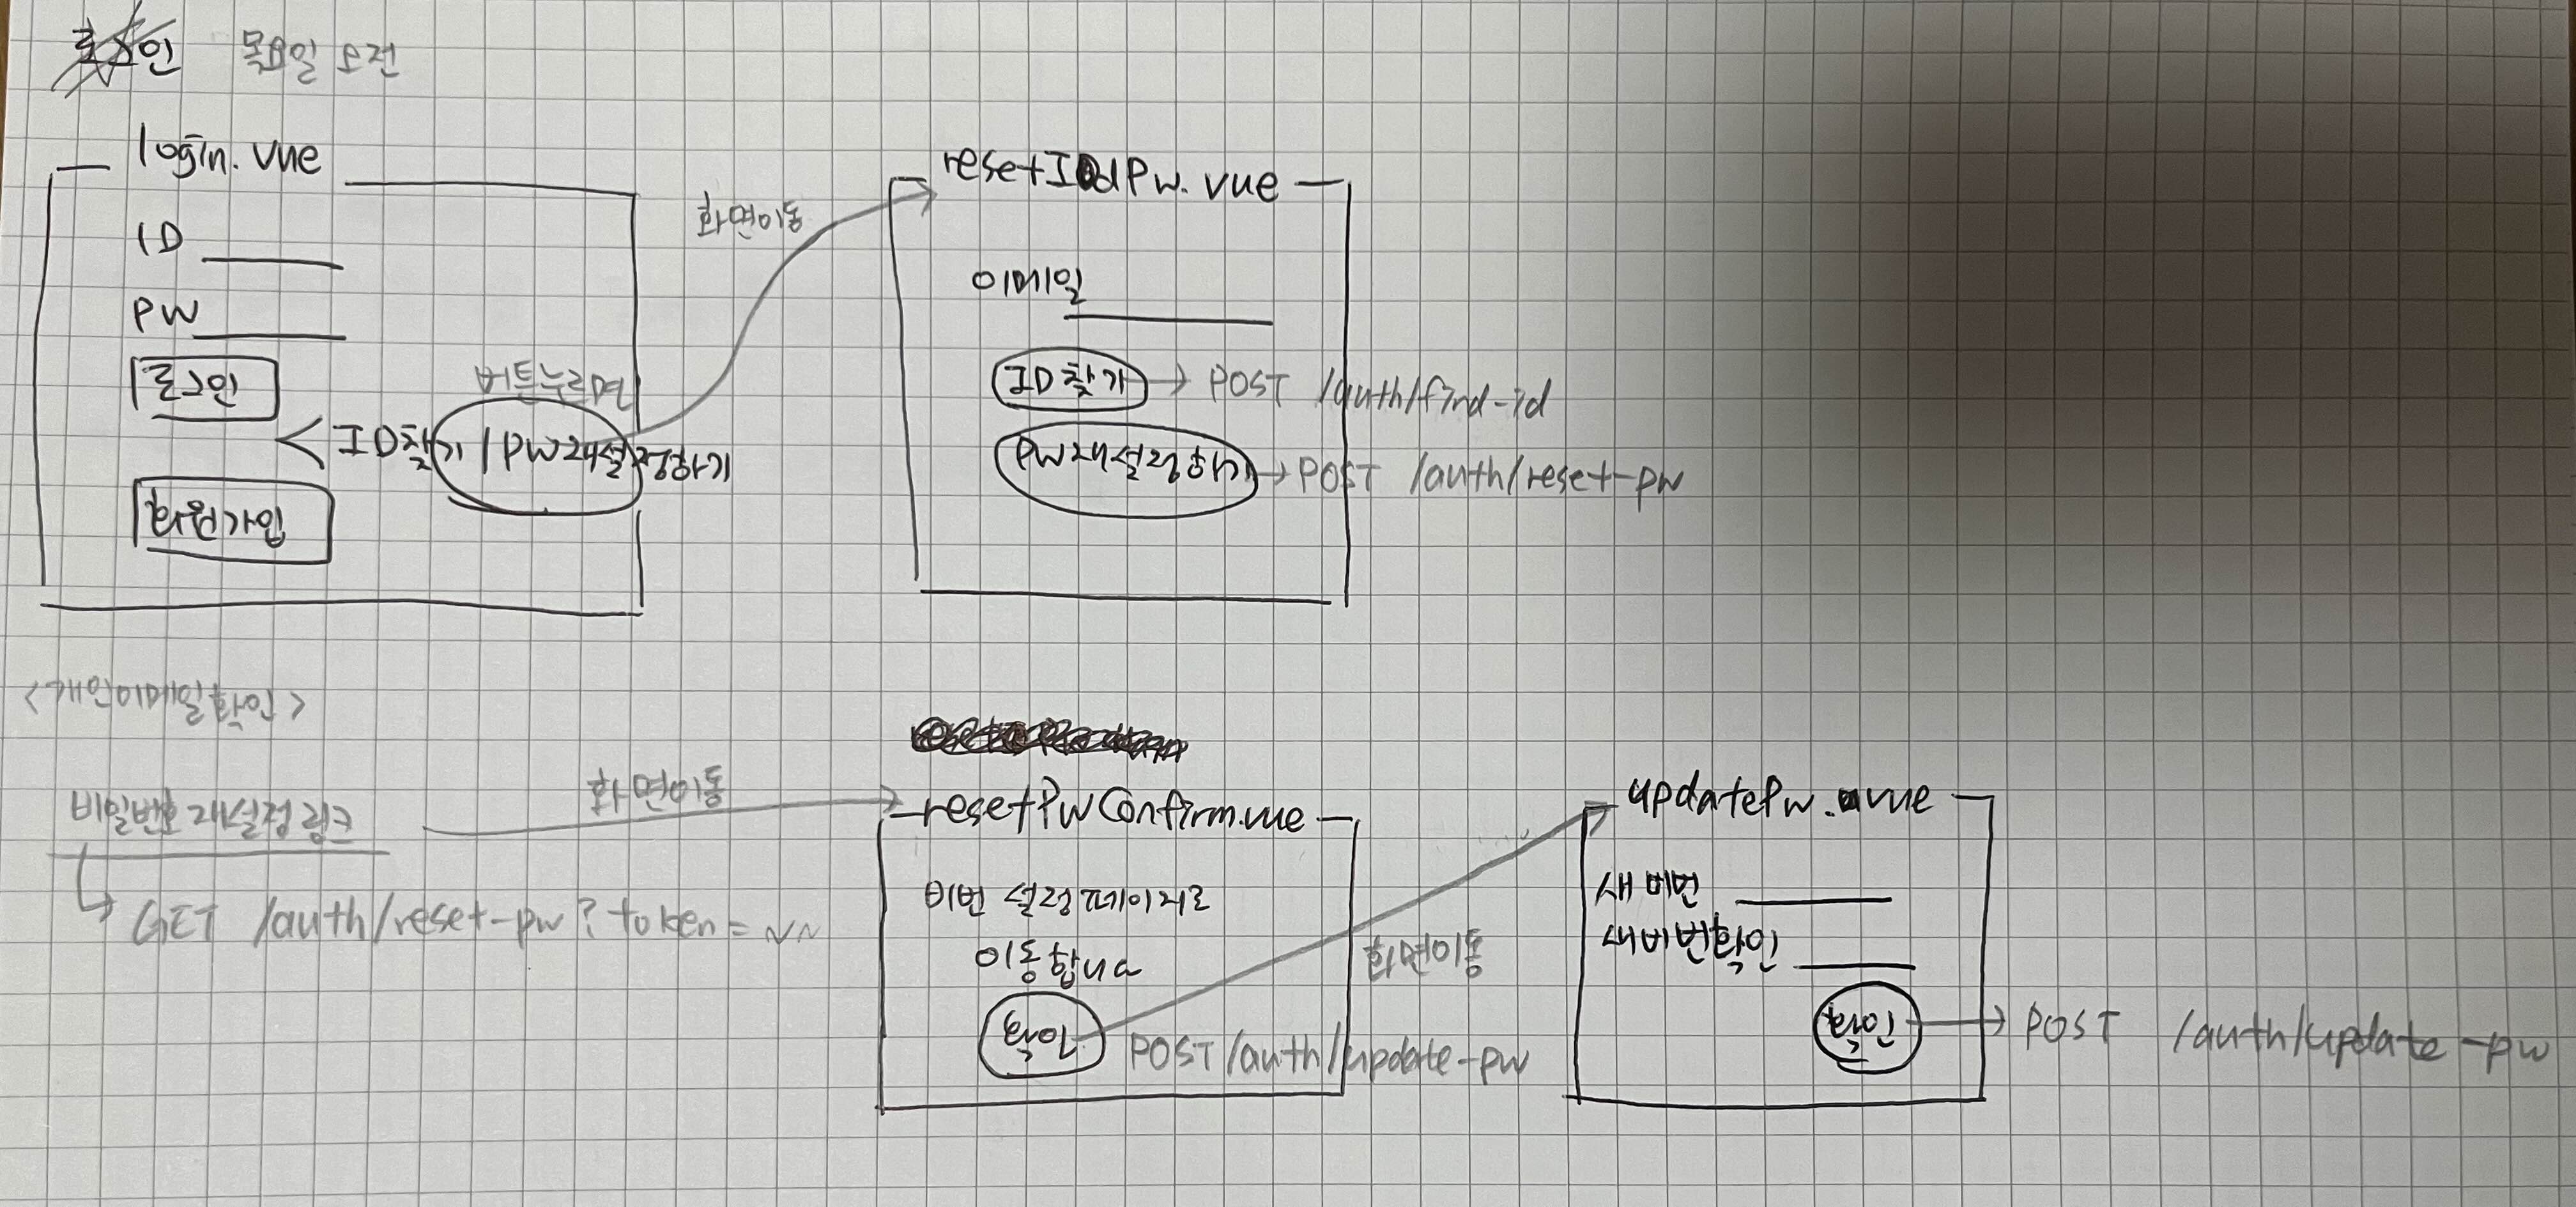 로그인 목요일 오전
login.vue
ID
PW
로그인
버튼누르면
< ID찾기 / PW재설정하기
회원가입
화면이동
resetIdPw.vue
이메일
ID찾기 → POST /auth/find-id
PW재설정하기 → POST /auth/reset-pw
<개인이메일확인>
비밀번호 재설정 링크
GET /auth/reset-pw?token=~~
화면이동
resetPwConfirm.vue
비번 설정페이지로
이동합니다
확인 POST /auth/update-pw
화면이동
updatePw.vue
새비번
새비번확인
확인 → POST /auth/update-pw